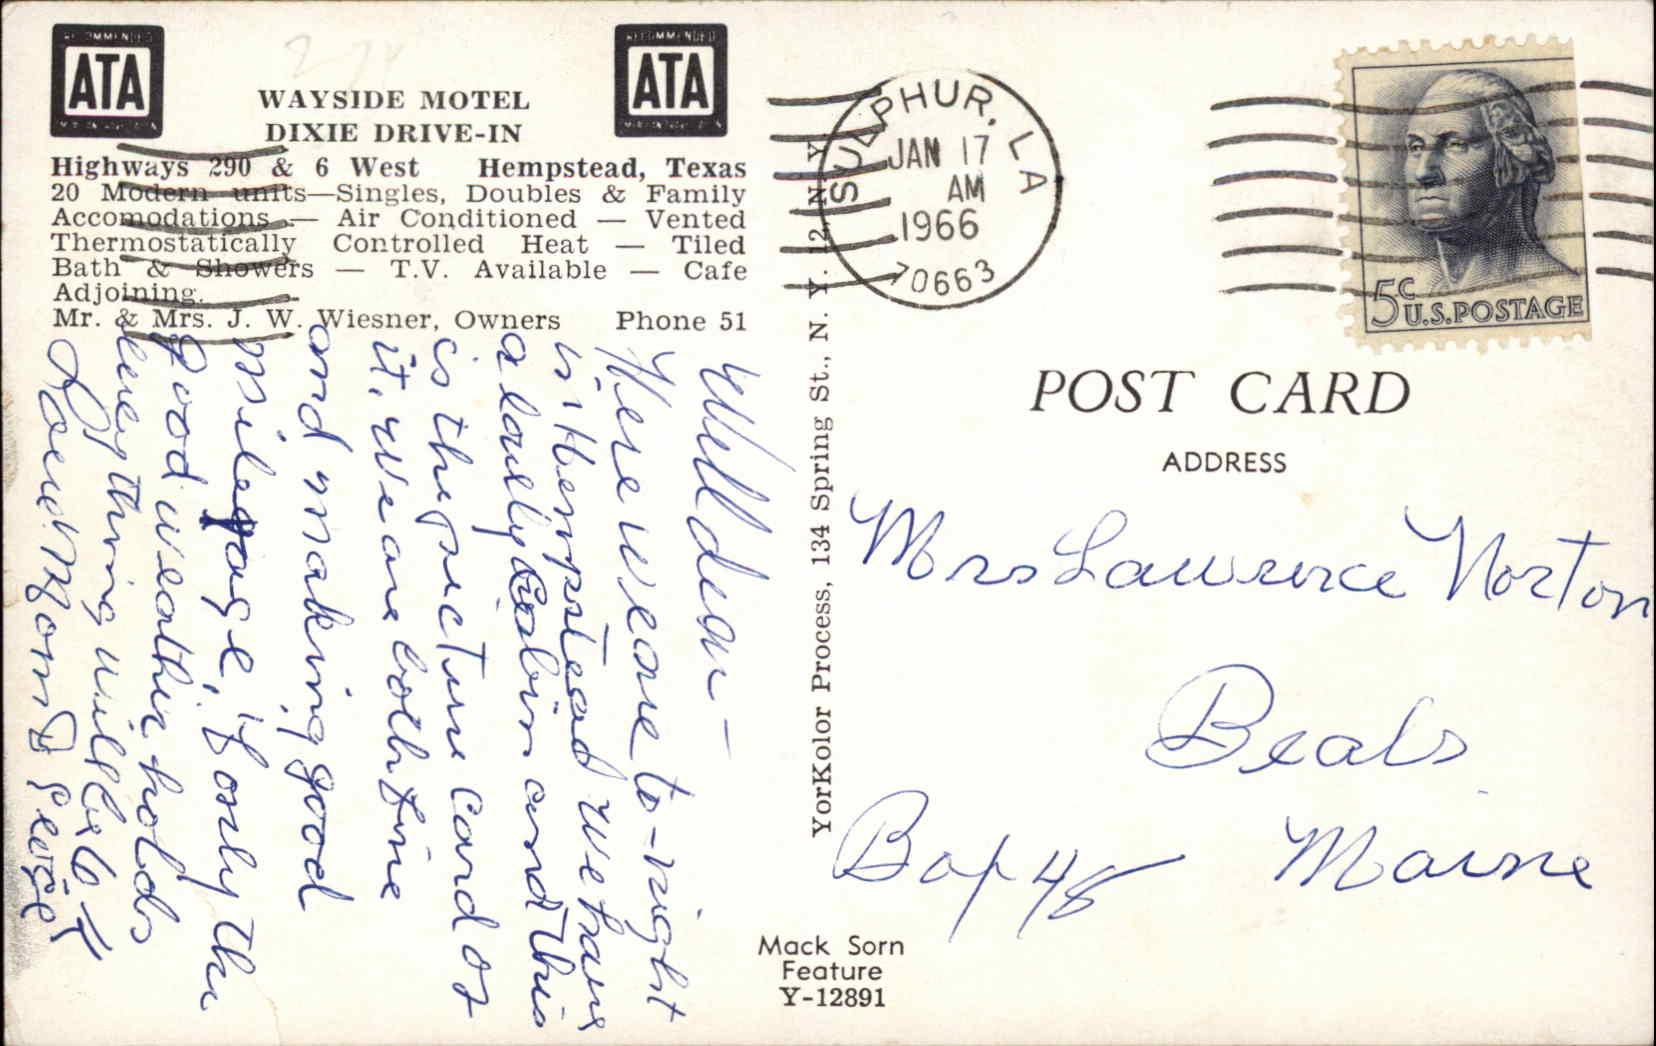 RECOMMENDED
ATA
RECOMMENDED
ATA
WAYSIDE MOTEL
DIXIE DRIVE-IN
Highways 290 & 6 West Hempstead, Texas
20 Modern units—Singles, Doubles & Family
Accomodations — Air Conditioned — Vented
Thermostatically Controlled Heat — Tiled
Bath & Showers — T.V. Available — Cafe
Adjoining.
Mr. & Mrs. J. W. Wiesner, Owners Phone 51
Well dear —
Here we are to-night
in Hempstead we have
a lovely Cabin and this
is the picture card of
it. We are both fine
and making good
mileage, if only the
good weather holds
everything will be O.K
Love Mom &
YorKolor Process, 134 Spring St., N. Y. 12 N. Y.
SULPHUR, LA
JAN 17
AM
1966
70663
5c
U.S. POSTAGE
POST CARD
ADDRESS
Mrs Lawrence Norton
Beals
Box 48 Maine
Mack Sorn
Feature
Y-12891